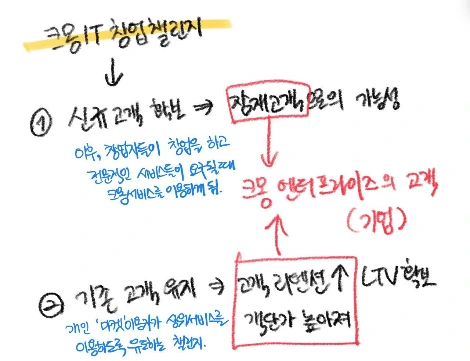 크몽 IT 창업챌린지
↓
① 신규고객 확보 ⇒ 잠재고객 으로의 가능성
이후, 창업자들이 창업을 하고
전문적인 서비스들이 요구될 때
크몽서비스를 이용하게 됨.
크몽 엔터프라이즈의 고객
(기업)
② 기존 고객 유지 ⇒ 고객 리텐션↑ LTV 확보
객단가 높아져
개인 '마켓'이용자가 상위서비스를
이용하도록 유도하는 챌린지.